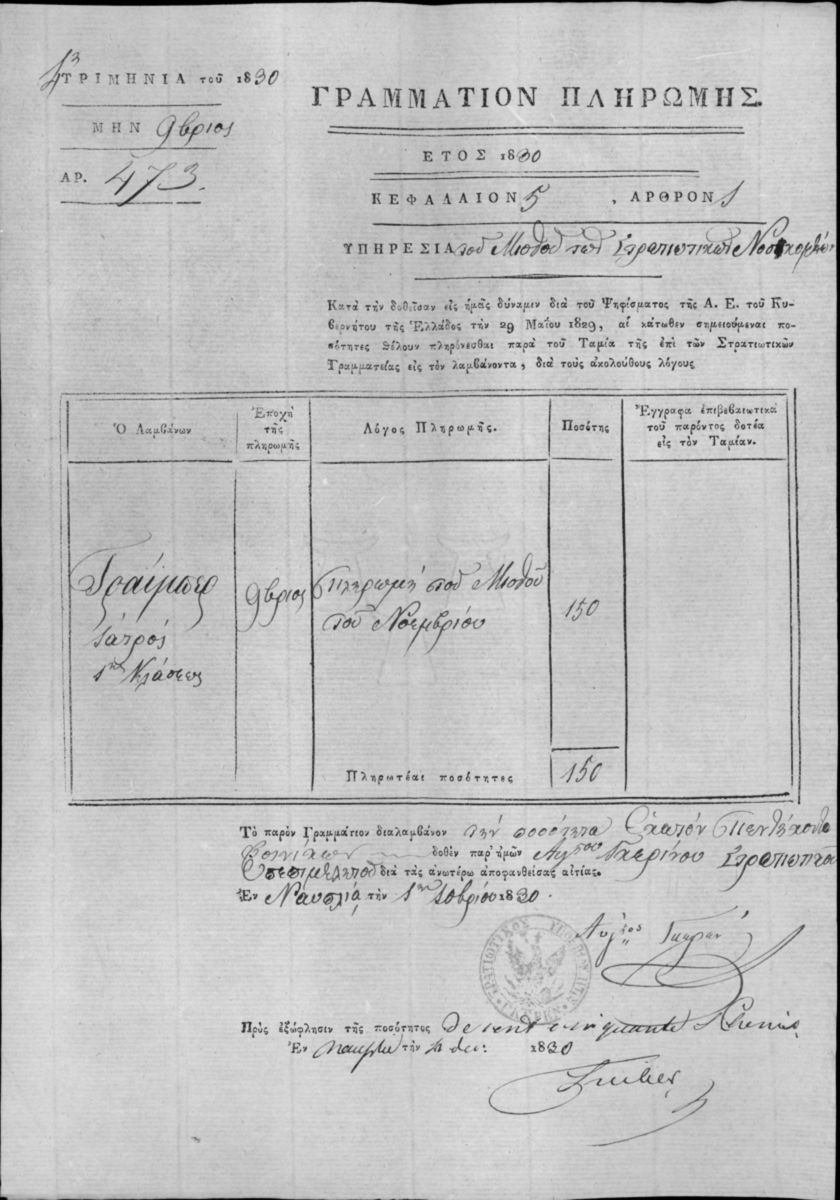 ΤΡΙΜΗΝΙΑ τοῦ 1830
ΜΗΝ 9βριος
ΑΡ. 473.
ΓΡΑΜΜΑΤΙΟΝ ΠΛΗΡΩΜΗΣ.
ΕΤΟΣ 1830
ΚΕΦΑΛΑΙΟΝ 5, ΑΡΘΡΟΝ 1
ΥΠΗΡΕΣΙΑ τοῦ Μισθοῦ τῶν Στρατιωτικῶν
Κατὰ τὴν δοθεῖσαν εἰς ἡμᾶς δύναμιν διὰ τοῦ Ψηφίσματος τῆς Α. Ε. τοῦ Κυ-
βερνήτου τῆς Ἑλλάδος τὴν 29 Μαΐου 1829, αἱ κάτωθεν σημειούμεναι πο-
σότητες θέλουν πληρόνεσθαι παρὰ τοῦ Ταμία τῆς ἐπὶ τῶν Στρατιωτικῶν
Γραμματείας εἰς τὸν λαμβάνοντα, διὰ τοὺς ἀκολούθους λόγους
Ὁ Λαμβάνων
Ἐποχὴ
τῆς
πληρωμῆς
Λόγος Πληρωμῆς.
Ποσότης
Ἔγγραφα ἐπιβεβαιωτικὰ
τοῦ παρόντος δοτέα
εἰς τὸν Ταμίαν.
Τράϊμπερ
ἰατρός
1ης Κλάσεως
9βριος
Πληρωμὴ τοῦ Μισθοῦ
τοῦ Νοεμβρίου
150
Πληρωτέαι ποσότητες
150
Τὸ παρὸν Γραμμάτιον διαλαμβάνον τὴν ποσότητα Ἑκατὸν Πεντήκοντα
Φοινίκων δοθὲν παρ' ἡμῶν
διὰ τὰς ἀνωτέρω ἀποφανθείσας αἰτίας.
Ἐν Ναυπλίᾳ τὴν 1ην 10βρίου 1830
Πρὸς ἐξώφλησιν τῆς ποσότητος de cent cinquante Phenix
Ἐν Nauplie τὴν dec: 1830